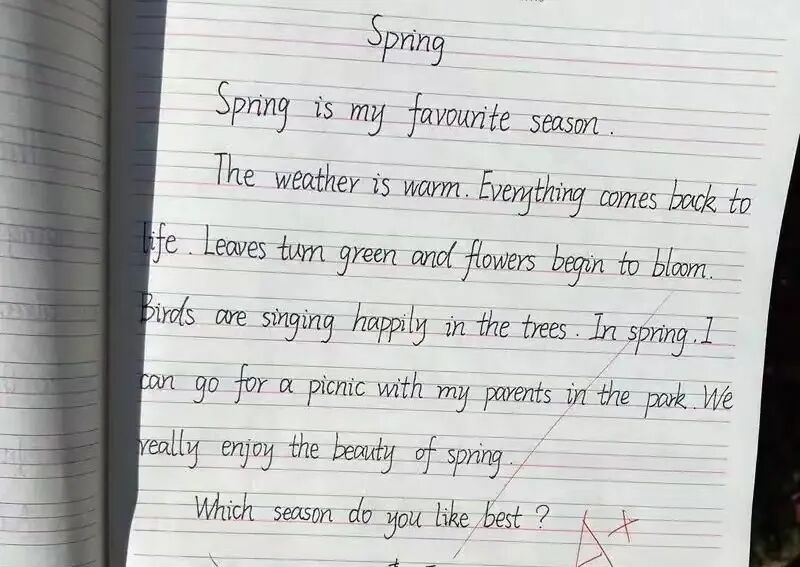 Spring
Spring is my favourite season.
The weather is warm. Everything comes back to
life. Leaves turn green and flowers begin to bloom.
Birds are singing happily in the trees. In spring. I
can go for a picnic with my parents in the park. We
really enjoy the beauty of spring.
Which season do you like best?
A+